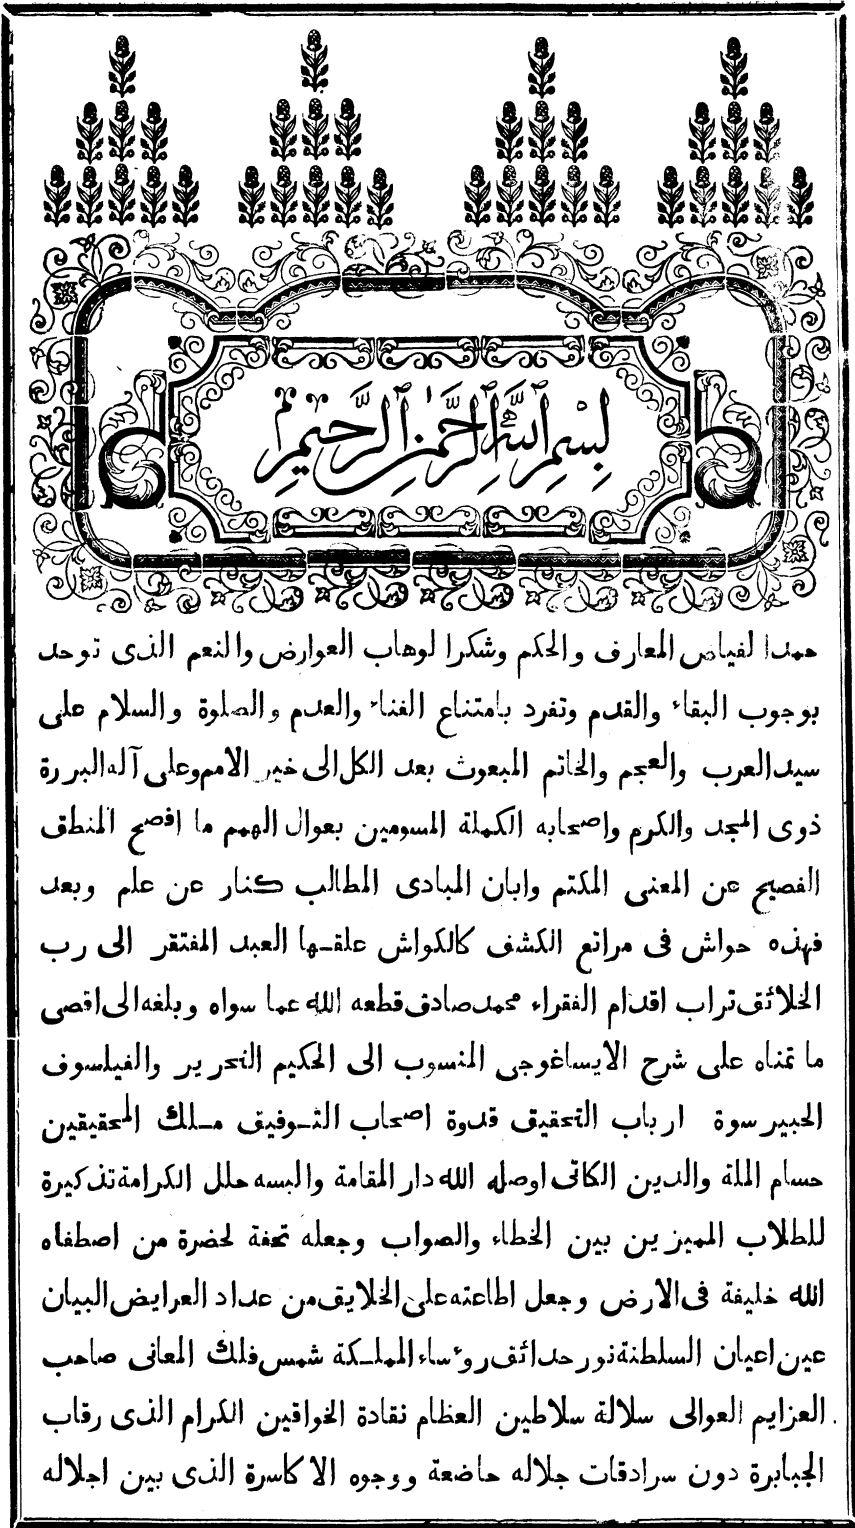 بسم الله الرحمن الرحيم
حمدا لفياض المعارف والحكم وشكرا لوهاب العوارض والنعم الذى توحد
بوجوب البقاء والقدم وتفرد بامتناع الفناء والعدم والصلوة والسلام على
سيد العرب والعجم والخاتم المبعوث بعد الكل الى خير الامم وعلى آله البررة
ذوى المجد والكرم واصحابه الكملة المسومين بعوال الهمم ما افصح المنطق
الفصيح عن المعنى المكتم وابان المبادى المطالب كنار عن علم وبعد
فهذه حواش فى مراتع الكشف كالكواش علقها العبد المفتقر الى رب
الخلائق تراب اقدام الفقراء محمد صادق قطعه الله عما سواه وبلغه الى اقصى
ما تمناه على شرح الايساغوجى المنسوب الى الحكيم التحرير والفيلسوف
الحبير سوة ارباب التحقيق قدوة اصحاب التوفيق ملك المحقيقين
حسام الملة والدين الكاتى اوصله الله دار المقامة والبسه حلل الكرامة تذكيرة
للطلاب المميزين بين الخطاء والصواب وجعله تحفة لحضرة من اصطفاه
الله خليفة فى الارض وجعل اطاعته على الخلايق من عداد العرايض البيان
عين اعيان السلطنة نور حدائق روءساء المملكة شمس فلك المعانى صاحب
العزايم العوالى سلالة سلاطين العظام نقادة الخواقين الكرام الذى رقاب
الجبابرة دون سرادقات جلاله حاضعة ووجوه الاكاسرة الذى بين اجلاله